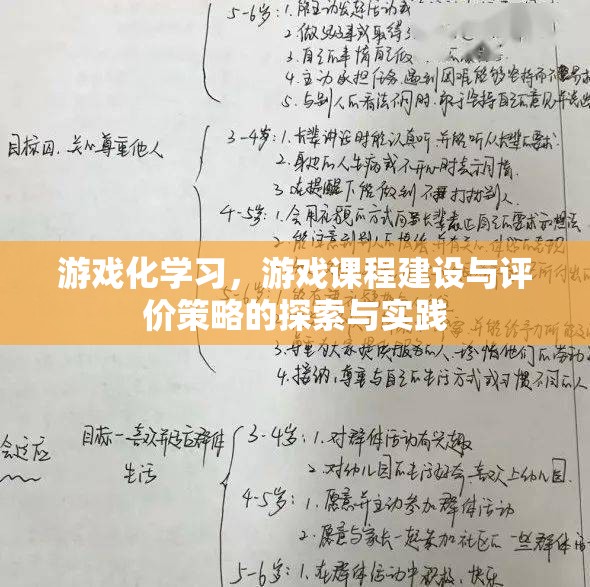 5-6岁：1.能主动发起活动或
2.做
3.自己的事情自己做
4.主动承担任务，遇到困难能够坚持而不
5.与别人的看法不同时，敢于坚持自己的意见并说出
目标四、关心尊重他人
3-4岁：1.长辈讲话时能认真听，并能听从长辈的要求
2.身边的人生病或不开心时表示同情
3.在提醒下能做到不打扰别人
4-5岁：1.会用礼貌的方式向长辈表达自己的要求和想法
2.能注意到别人的情绪，并有关心、体贴的表现
游戏化学习，游戏课程建设与评
价策略的探索与实践
5-6岁
并能给予力所能及
3.尊重为大家提供服务的人，珍惜他们的劳动
4.接纳、尊重与自己的生活方式或习惯不同的人
会适应
目标一 喜欢并适应群体
生活
3-4岁：1.对群体活动有兴趣
2.对幼儿园的生活好奇，喜欢上幼儿园.
4-5岁：1.愿意并主动参加群体活动
2.愿意与家长一起参加社区的一些群体活
5-6岁：1.在群体活动中积极、快乐